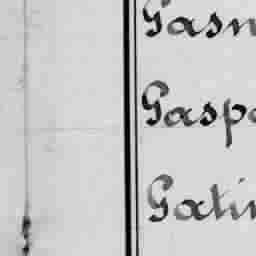 Gasn
Gaspa
Gatin